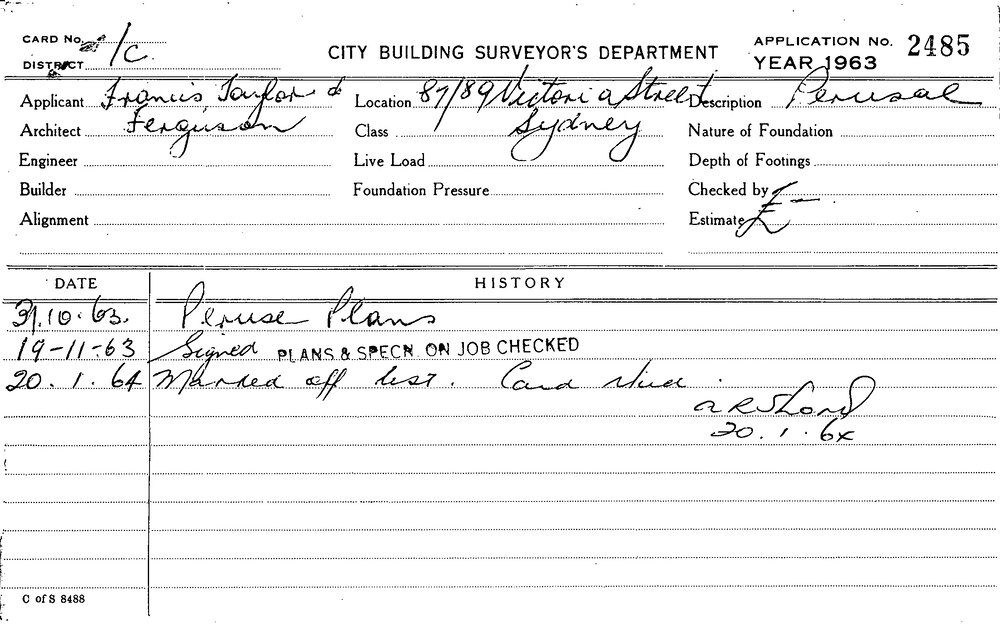 CARD No. 1/C. CITY BUILDING SURVEYOR'S DEPARTMENT APPLICATION No. 2485
DISTRICT YEAR 1963
Applicant Francis, Taylor & Location 87/89 Victoria Street Description Perusal
Architect Ferguson Class Sydney Nature of Foundation
Engineer Live Load Depth of Footings
Builder Foundation Pressure Checked by
Alignment Estimate £ -
DATE HISTORY
31.10.63. Peruse Plans
19-11-63 Signed PLANS & SPECN. ON JOB CHECKED
20.1.64 Marked off list. Card
20.1.64
C of S 8488